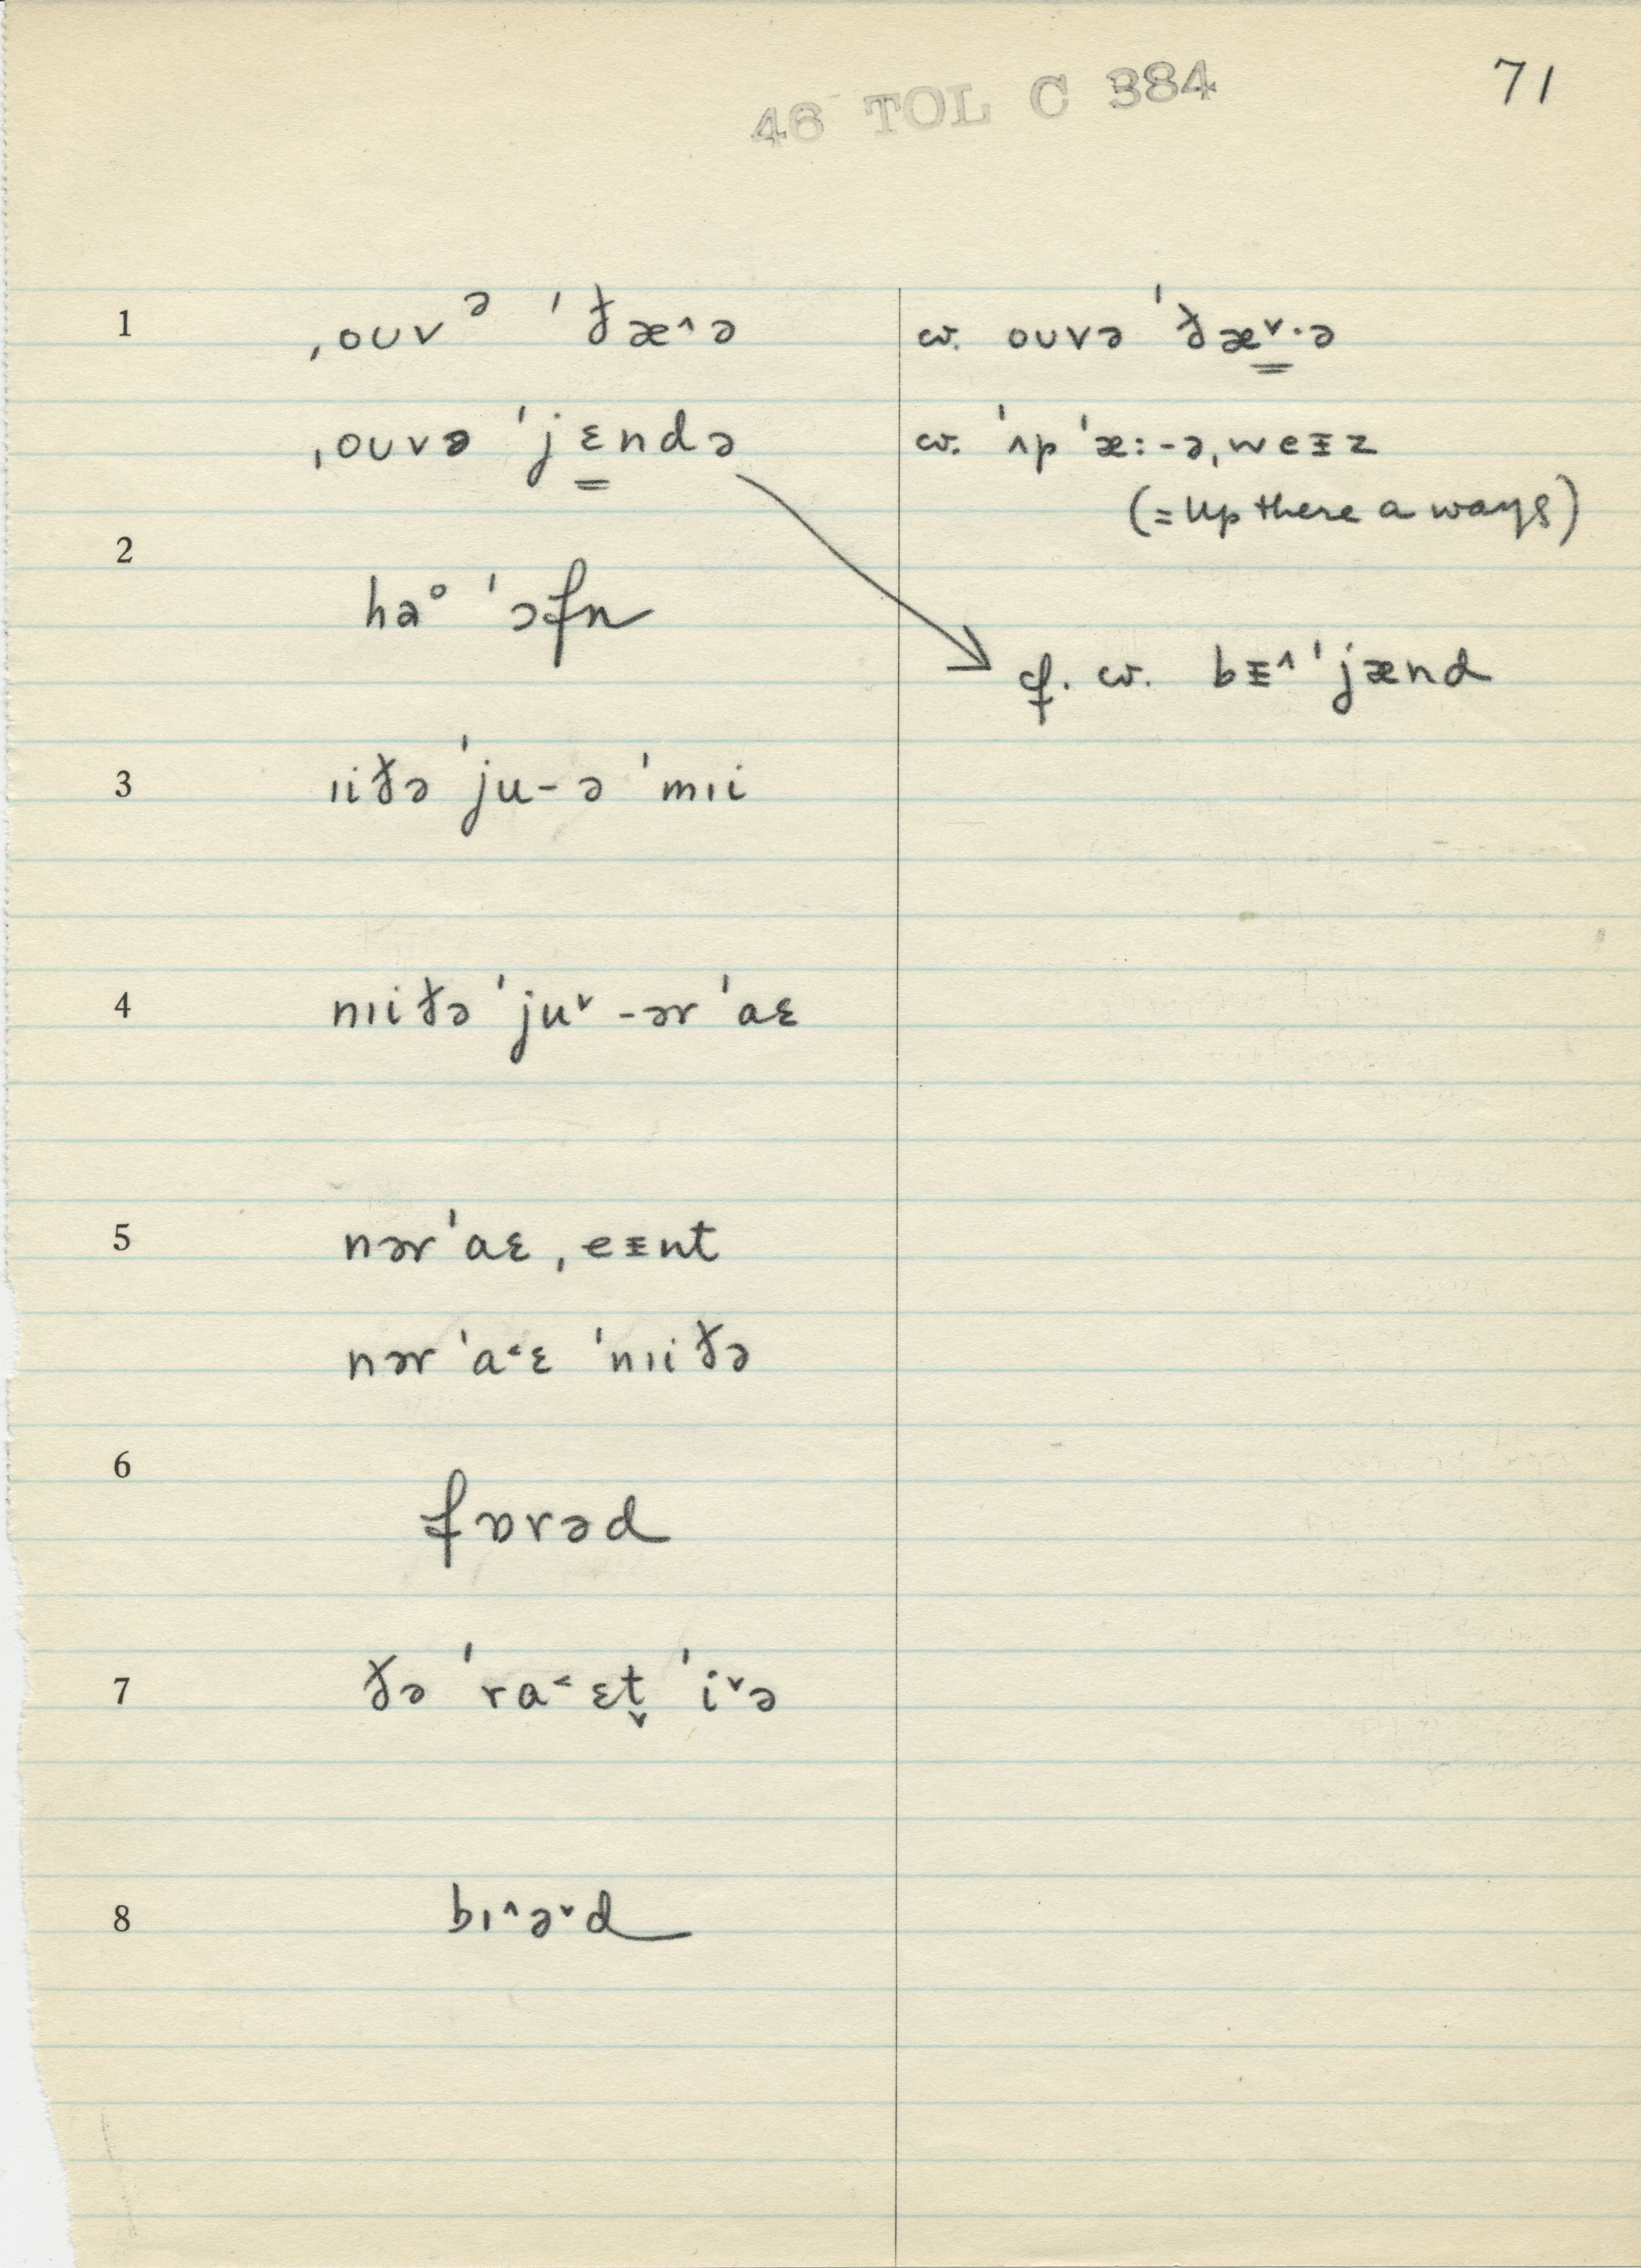 46 TOL C 384
71
1 ˌoʊvᵊ ˈðæ^ə
w. oʊvə ˈðæ̳ᵛ·ə
ˌoʊvə ˈjɛ̳ndə
w. ˈʌp ˈæ:-ə ˌweᵻz
(= up there a ways)
2
hə° ˈɔfn
cf. w. bᵻ^ ˈjænd
3 ɪiðə ˈju-ə ˈmɪi
4 nɪiðə ˈjuᵛ-ər ˈaɛ
5 nər ˈaɛ ˌeᵻnt
nər ˈa˂ɛ ˈnɪiðə
6
fɒrəd
7 ðə ˈra˂ɛt̬ ˈiᵛə
8 bɪ^əᵛd